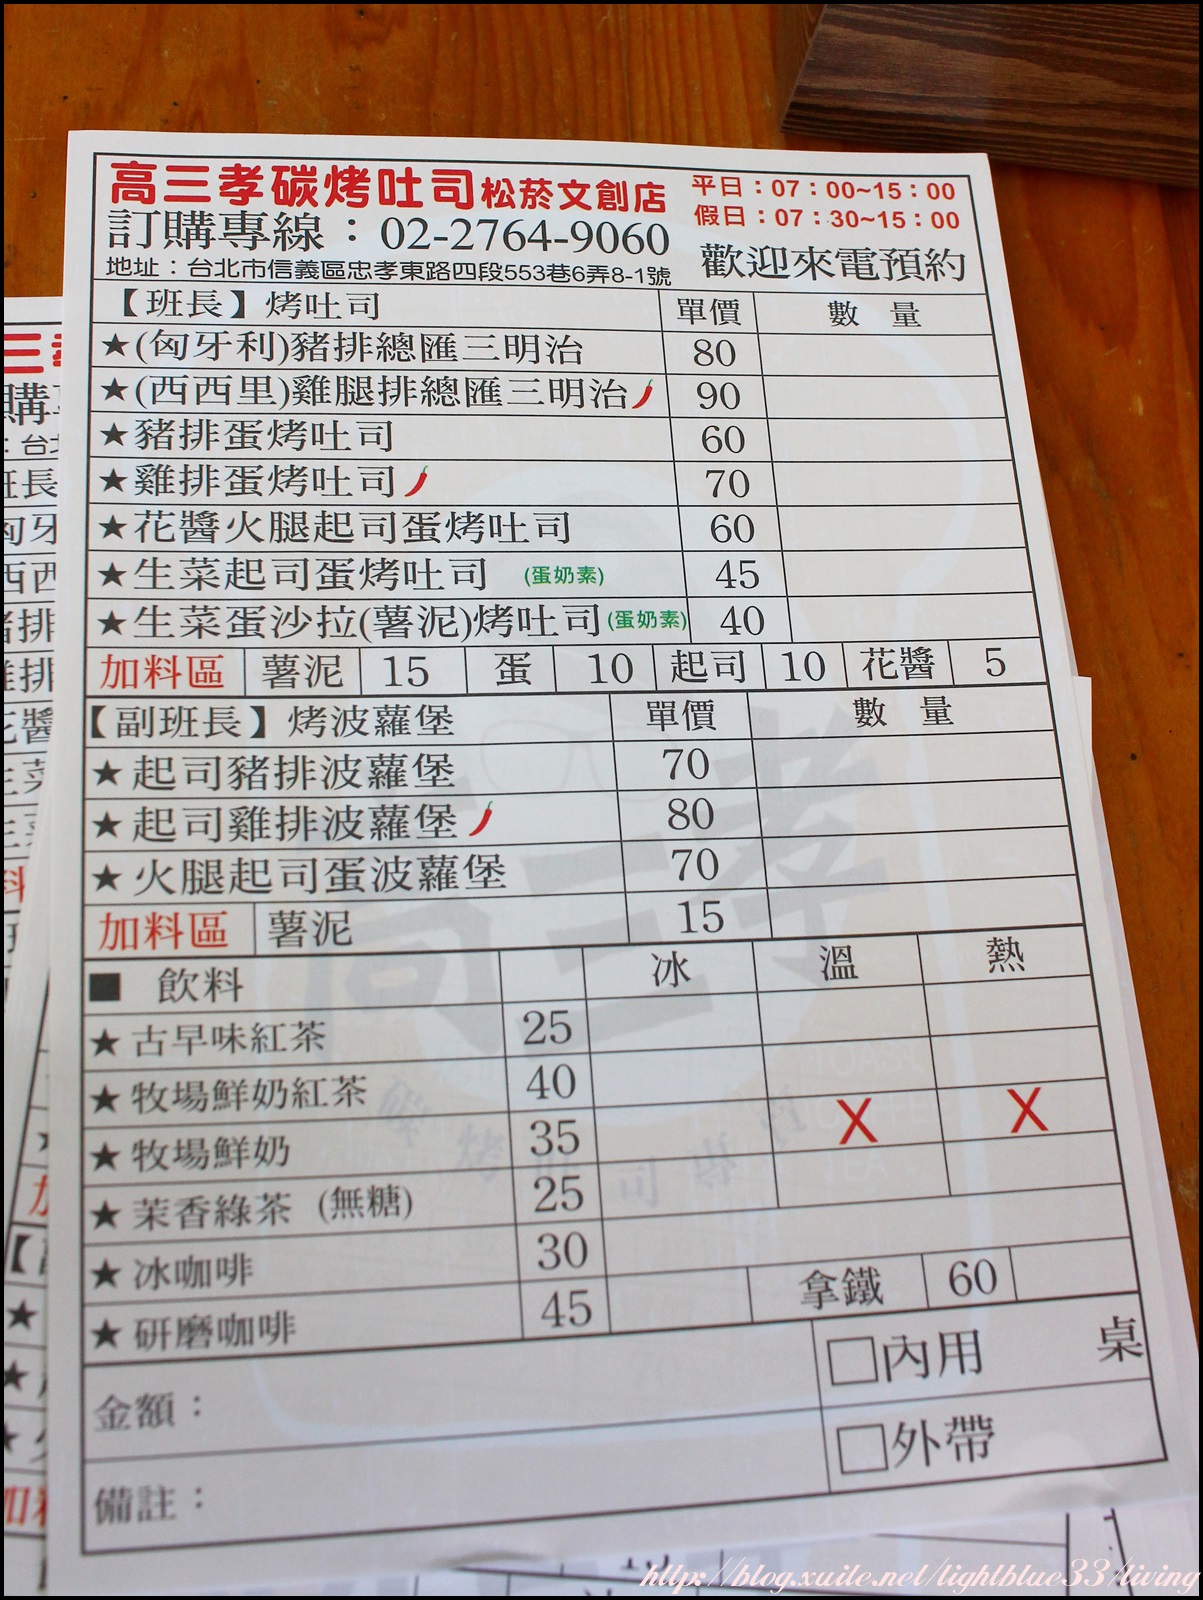 高三孝碳烤吐司松菸文創店 平日：07：00~15：00
假日：07：30~15：00
訂購專線：02-2764-9060 歡迎來電預約
地址：台北市信義區忠孝東路四段553巷6弄8-1號
【班長】烤吐司 單價 數量
★(匈牙利)豬排總匯三明治 80
★(西西里)雞腿排總匯三明治 90
★豬排蛋烤吐司 60
★雞排蛋烤吐司 70
★花醬火腿起司蛋烤吐司 60
★生菜起司蛋烤吐司 (蛋奶素) 45
★生菜蛋沙拉(薯泥)烤吐司(蛋奶素) 40
加料區 薯泥 15 蛋 10 起司 10 花醬 5
【副班長】烤波蘿堡 單價 數量
★起司豬排波蘿堡 70
★起司雞排波蘿堡 80
★火腿起司蛋波蘿堡 70
加料區 薯泥 15
■ 飲料 冰 溫 熱
★古早味紅茶 25
★牧場鮮奶紅茶 40
★牧場鮮奶 35 X X
★茉香綠茶 (無糖) 25
★冰咖啡 30
★研磨咖啡 45 拿鐵 60
金額： □內用 桌
□外帶
備註：
http://blog.xuite.net/lightblue33/living